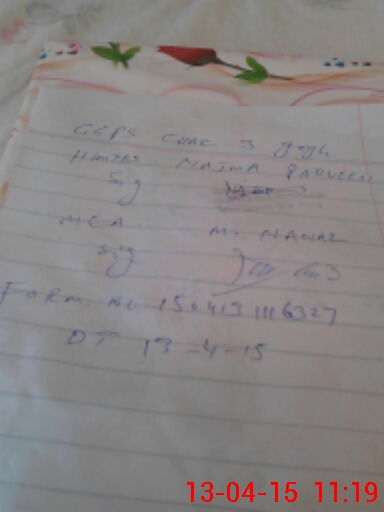 GGPS CHAK 3
NAJMA PARVEEN
Sig
MEA. M. NAWAZ
Sig
FORM NO 1504131116327
DT 13-4-15
13-04-15 11:19